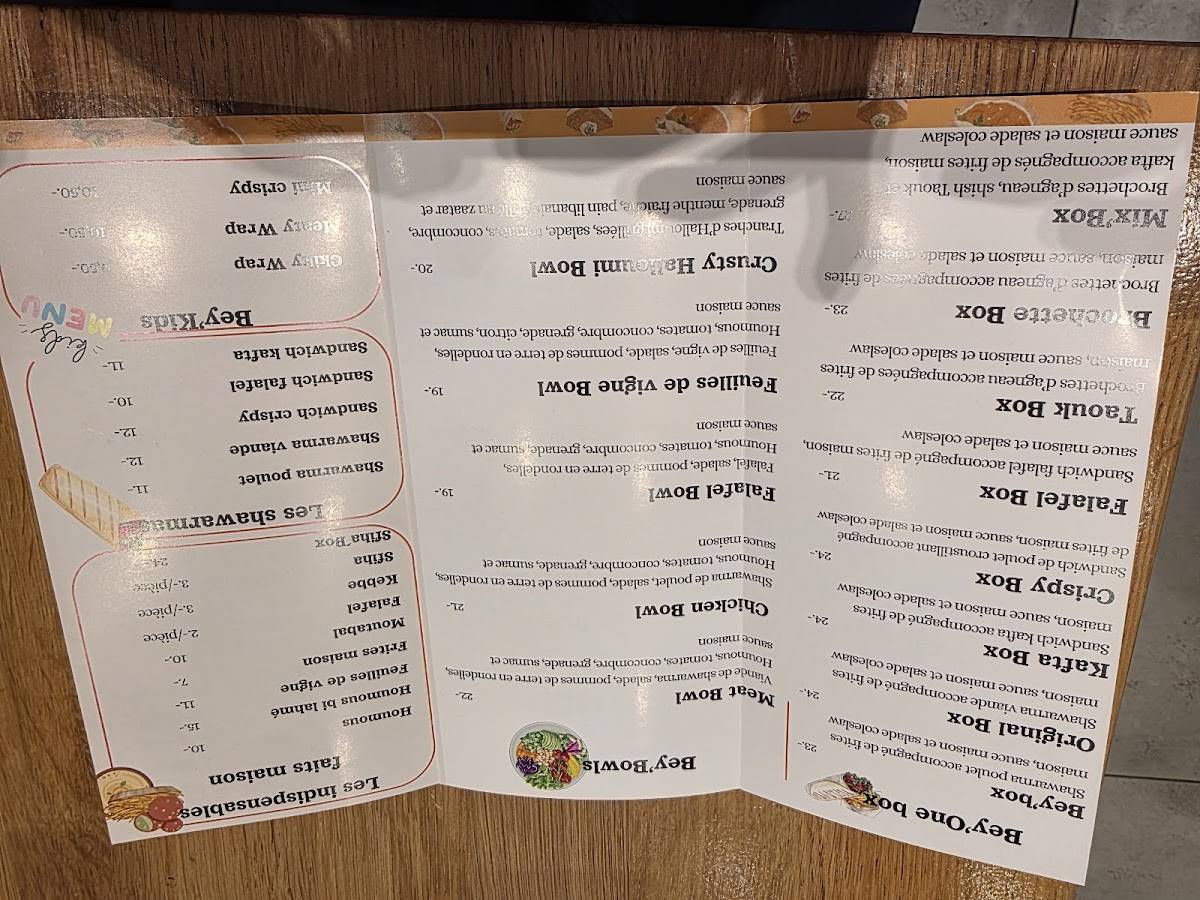 Bey'One box
Bey'box 23.-
Shawarma poulet accompagné de frites
maison, sauce maison et salade coleslaw
Original Box 24.-
Shawarma viande accompagné de frites
maison, sauce maison et salade coleslaw
Kafta Box 24.-
Sandwich kafta accompagné de frites
maison, sauce maison et salade coleslaw
Crispy Box 24.-
Sandwich de poulet croustillant accompagné
de frites maison, sauce maison et salade coleslaw
Falafel Box 21.-
Sandwich falafel accompagné de frites maison,
sauce maison et salade coleslaw
Taouk Box 22.-
Brochettes d'agneau accompagnées de frites
maison, sauce maison et salade coleslaw
Brochette Box 23.-
Brochettes d'agneau accompagnées de frites
maison, sauce maison et salade coleslaw
Mix'Box 27.-
Brochettes d'agneau, shish Taouk et
kafta accompagnés de frites maison,
sauce maison et salade coleslaw
Bey'Bowls
Meat Bowl 22.-
Viande de shawarma, salade, pommes de terre en rondelles,
Houmous, tomates, concombre, grenade, sumac et
sauce maison
Chicken Bowl 21.-
Shawarma de poulet, salade, pommes de terre en rondelles,
Houmous, tomates, concombre, grenade, sumac et
sauce maison
Falafel Bowl 19.-
Falafel, salade, pommes de terre en rondelles,
Houmous, tomates, concombre, grenade, sumac et
sauce maison
Feuilles de vigne Bowl 19.-
Feuilles de vigne, salade, pommes de terre en rondelles,
Houmous, tomates, concombre, grenade, citron, sumac et
sauce maison
Crusty Halloumi Bowl 20.-
Tranches d'Halloumi grillées, salade, tomates, concombre,
grenade, menthe fraîche, pain libanais grillé au zaatar et
sauce maison
Les indispensables
faits maison
Houmous 10.-
Houmous bi lahmé 15.-
Feuilles de vigne 11.-
Frites maison 7.-
Moutabal 10.-
Falafel 2.-/pièce
Kebbe 3.-/pièce
Sfiha 3.-/pièce
Sfiha'Box 24.-
Les shawarmas
Shawarma poulet 11.-
Shawarma viande 12.-
Sandwich crispy 12.-
Sandwich falafel 10.-
Sandwich kafta 11.-
Bey'Kids
"kids"
MENU
Chiky Wrap 9,50.-
Meaty Wrap 10,50.-
Mini crispy 10,50.-